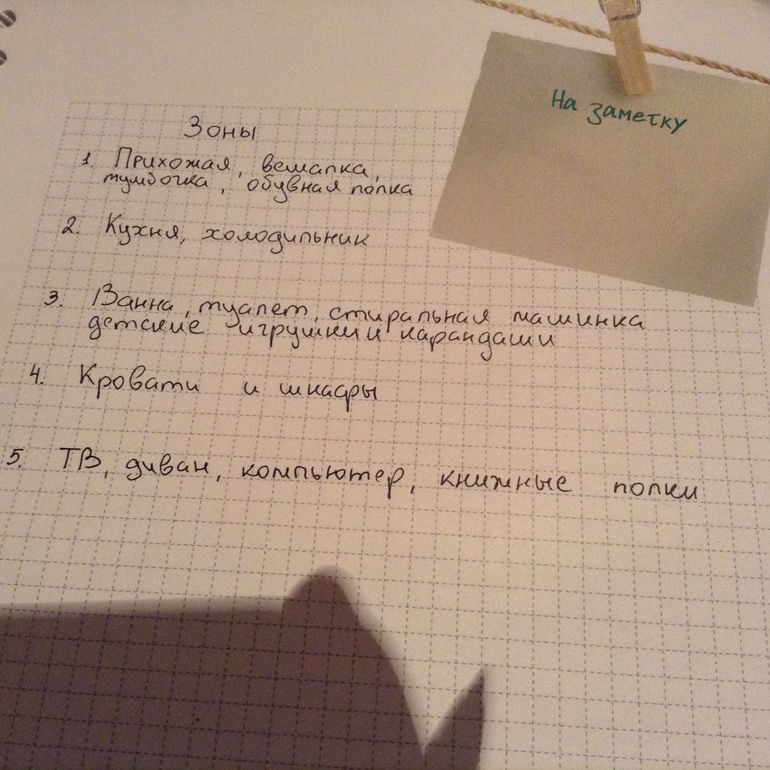 На заметку
Зоны
1. Прихожая, вешалка,
тумбочка, обувная полка
2. Кухня, холодильник
3. Ванна, туалет, стиральная машинка
детские игрушки и карандаши
4. Кровати и шкафы
5. ТВ, диван, компьютер, книжные полки